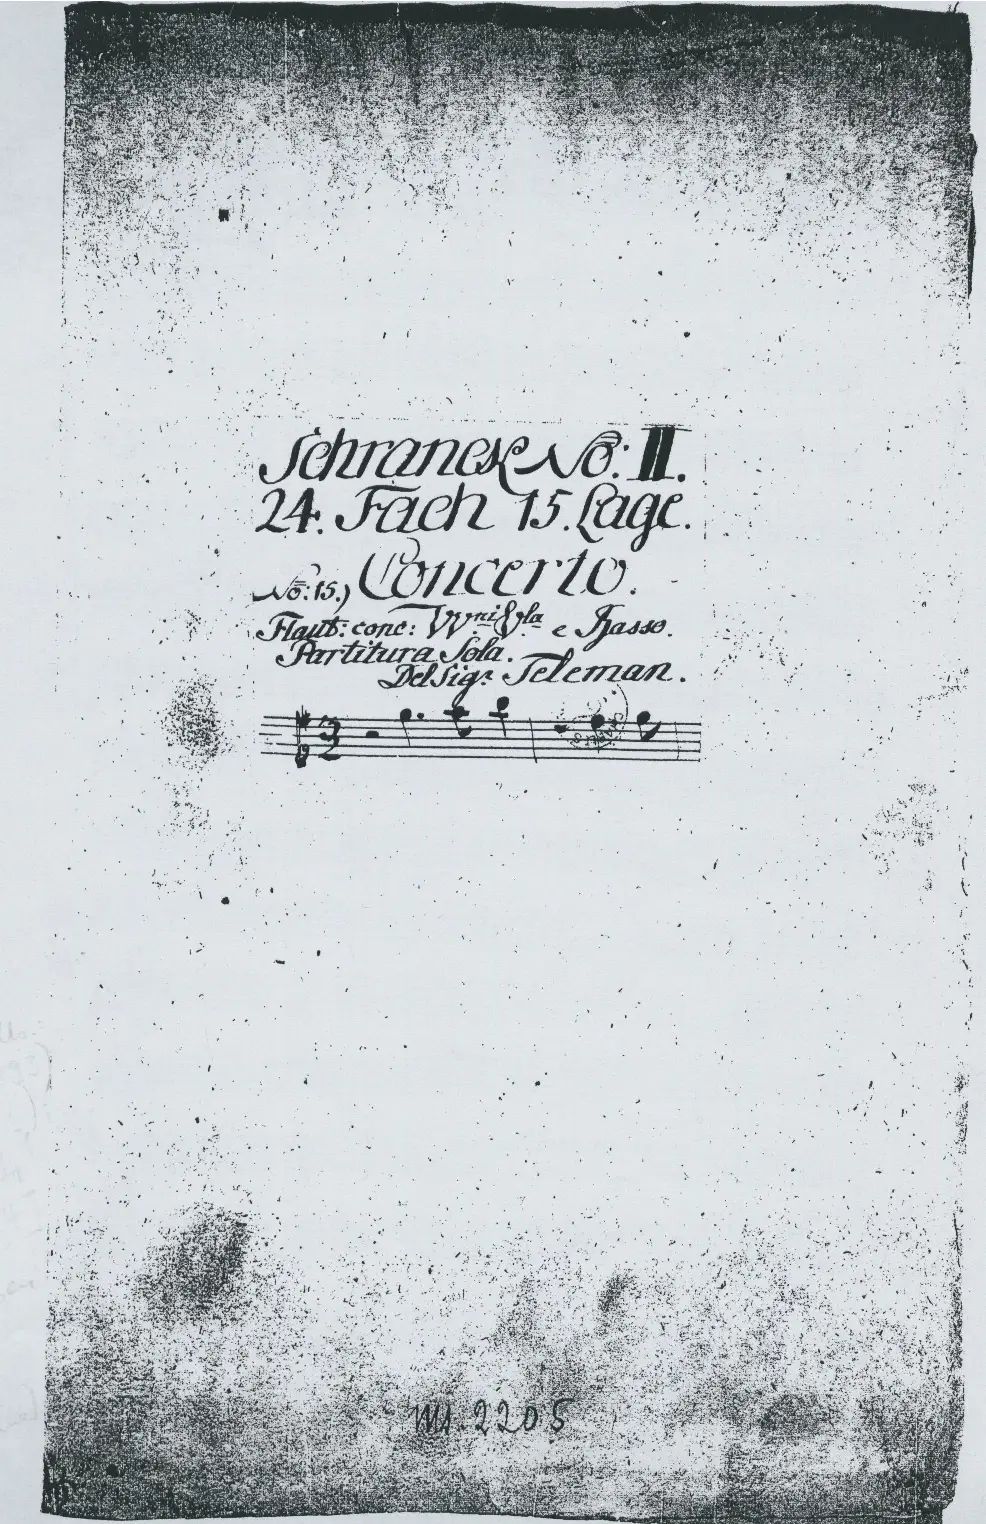 Schranck No: II.
24. Fach 15. Lage.
Concerto.
No: 15.)
Flaut: conc: VVni Vla e Basso.
Partitura Sola.
Del Sigr. Teleman.
2205